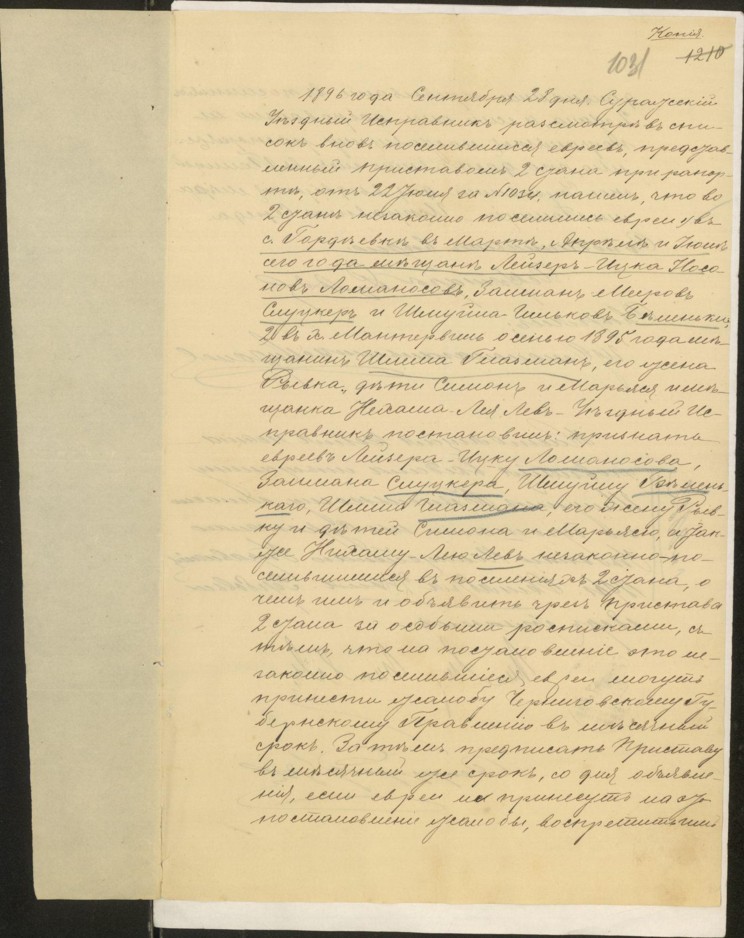 Копія
103
1210
1896 года Сентября 28 дня Суражскій
Уѣздный Исправникъ разсмотрѣвъ спи-
сокъ вновь поселившихся евреевъ, представ-
ленный Приставомъ 2 стана при рапор-
тѣ, отъ 22 Іюля за № 1034, нашелъ, что во
2 станѣ незаконно поселились евреи 1/ въ
с. Гордѣевкѣ въ Мартѣ, Апрѣлѣ и Іюнѣ
сего года мѣщане Лейзеръ-Ицка Носо-
новъ Ломаносовъ, Залманъ Меировъ
Слуцкеръ и Шмуйла Гильковъ Бѣленькій,
2/ въ х. Мантервишь осенью 1895 года мѣ-
щанинъ Шлиома Глазманъ, его жена
Рывка, дѣти Симонъ и Марьяся и мѣ-
щанка Нехама-Лея Левъ - Уѣздный Ис-
правникъ постановилъ: признать
евреевъ Лейзера-Ицку Ломаносова,
Залмана Слуцкера, Шмуйлу Бѣлень-
каго, Шлиому Глазмана, его жену Рыв-
ку и дѣтей Симона и Марьясю, а так-
же Нехаму-Лею Левъ незаконно по-
селившимися въ поселеніяхъ 2 стана, о
чемъ имъ и объявить чрезъ Пристава
2 стана за особыми росписками, съ
тѣмъ, что на постановленіе это не-
законно поселившіеся евреи могутъ
принести жалобу Черниговскому Гу-
бернскому Правленію въ мѣсячный
срокъ. Затѣмъ предписать Приставу
въ мѣсячный же срокъ, со дня объявле-
нія, если евреи не принесутъ на это
постановленіе жалобы, воспретить имъ